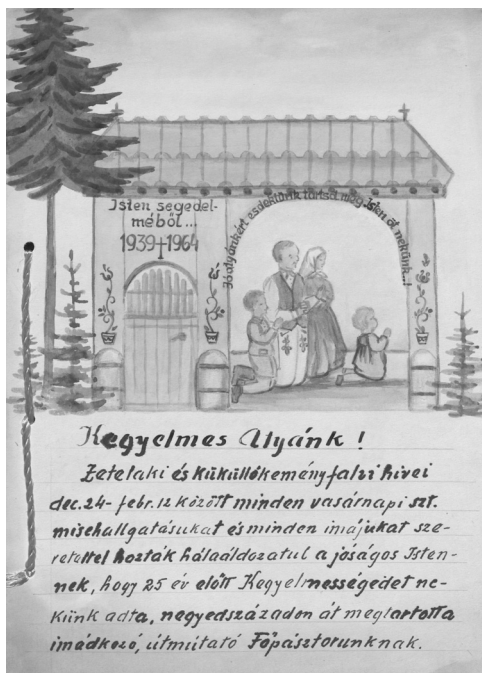 Isten segedel-
méből...
1939†1964
Jó atyánkért esdeklünk tartsa meg Isten őt nekünk...!
Kegyelmes Atyánk!
Zetelaki és Küküllőkeményfalvi hivei
dec. 24- febr. 12 között minden vasárnapi szt.
misehallgatásukat és minden imájukat sze-
retettel hozták hálaáldozatul a jóságos Isten-
nek, hogy 25 év előtt Kegyelmességedet ne-
künk adta, negyedszázadon át megtartotta
imádkozó, útmutató Főpásztorunknak.